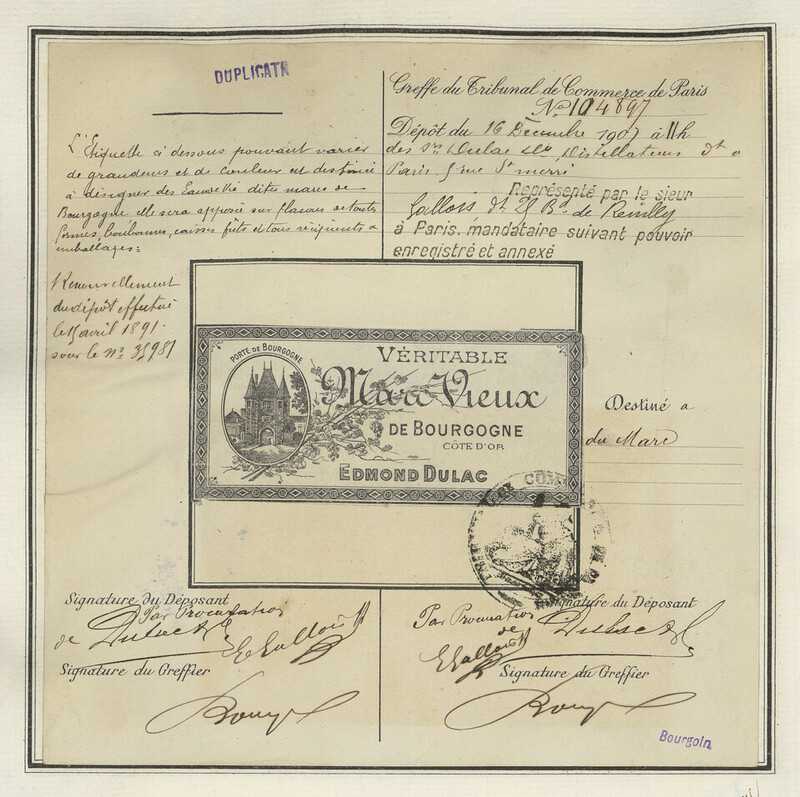 DUPLICATA
L'Etiquette ci dessous pouvant varier
de grandeurs et de couleur est destinée
à désigner des Eauxdevie dites marc de
Bourgogne elle sera apposée sur flacons de toutes
formes, bonbonnes, caisses fûts et tous récipients &
emballages =
Renouvellement
du dépôt effectué
le avril 1891.
sous le no 35981
Greffe du Tribunal de Commerce de Paris
No 104897
Dépôt du 16 Décembre 1907 à 11h
des Srs Dulac Distillateurs dt à
Paris rue St merri
Représenté par le sieur
Gallois, dt Bd de Reuilly
à Paris, mandataire suivant pouvoir
enregistré et annexé
PORTE DE BOURGOGNE
VÉRITABLE
Marc Vieux
DE BOURGOGNE
CÔTE D'OR
EDMOND DULAC
Destiné a
du Marc
Signature du Déposant
Par Procuration
de Dulac
Signature du Greffier
Signature du Déposant
Par Procuration
de Dulac
Signature du Greffier
Bourgoin